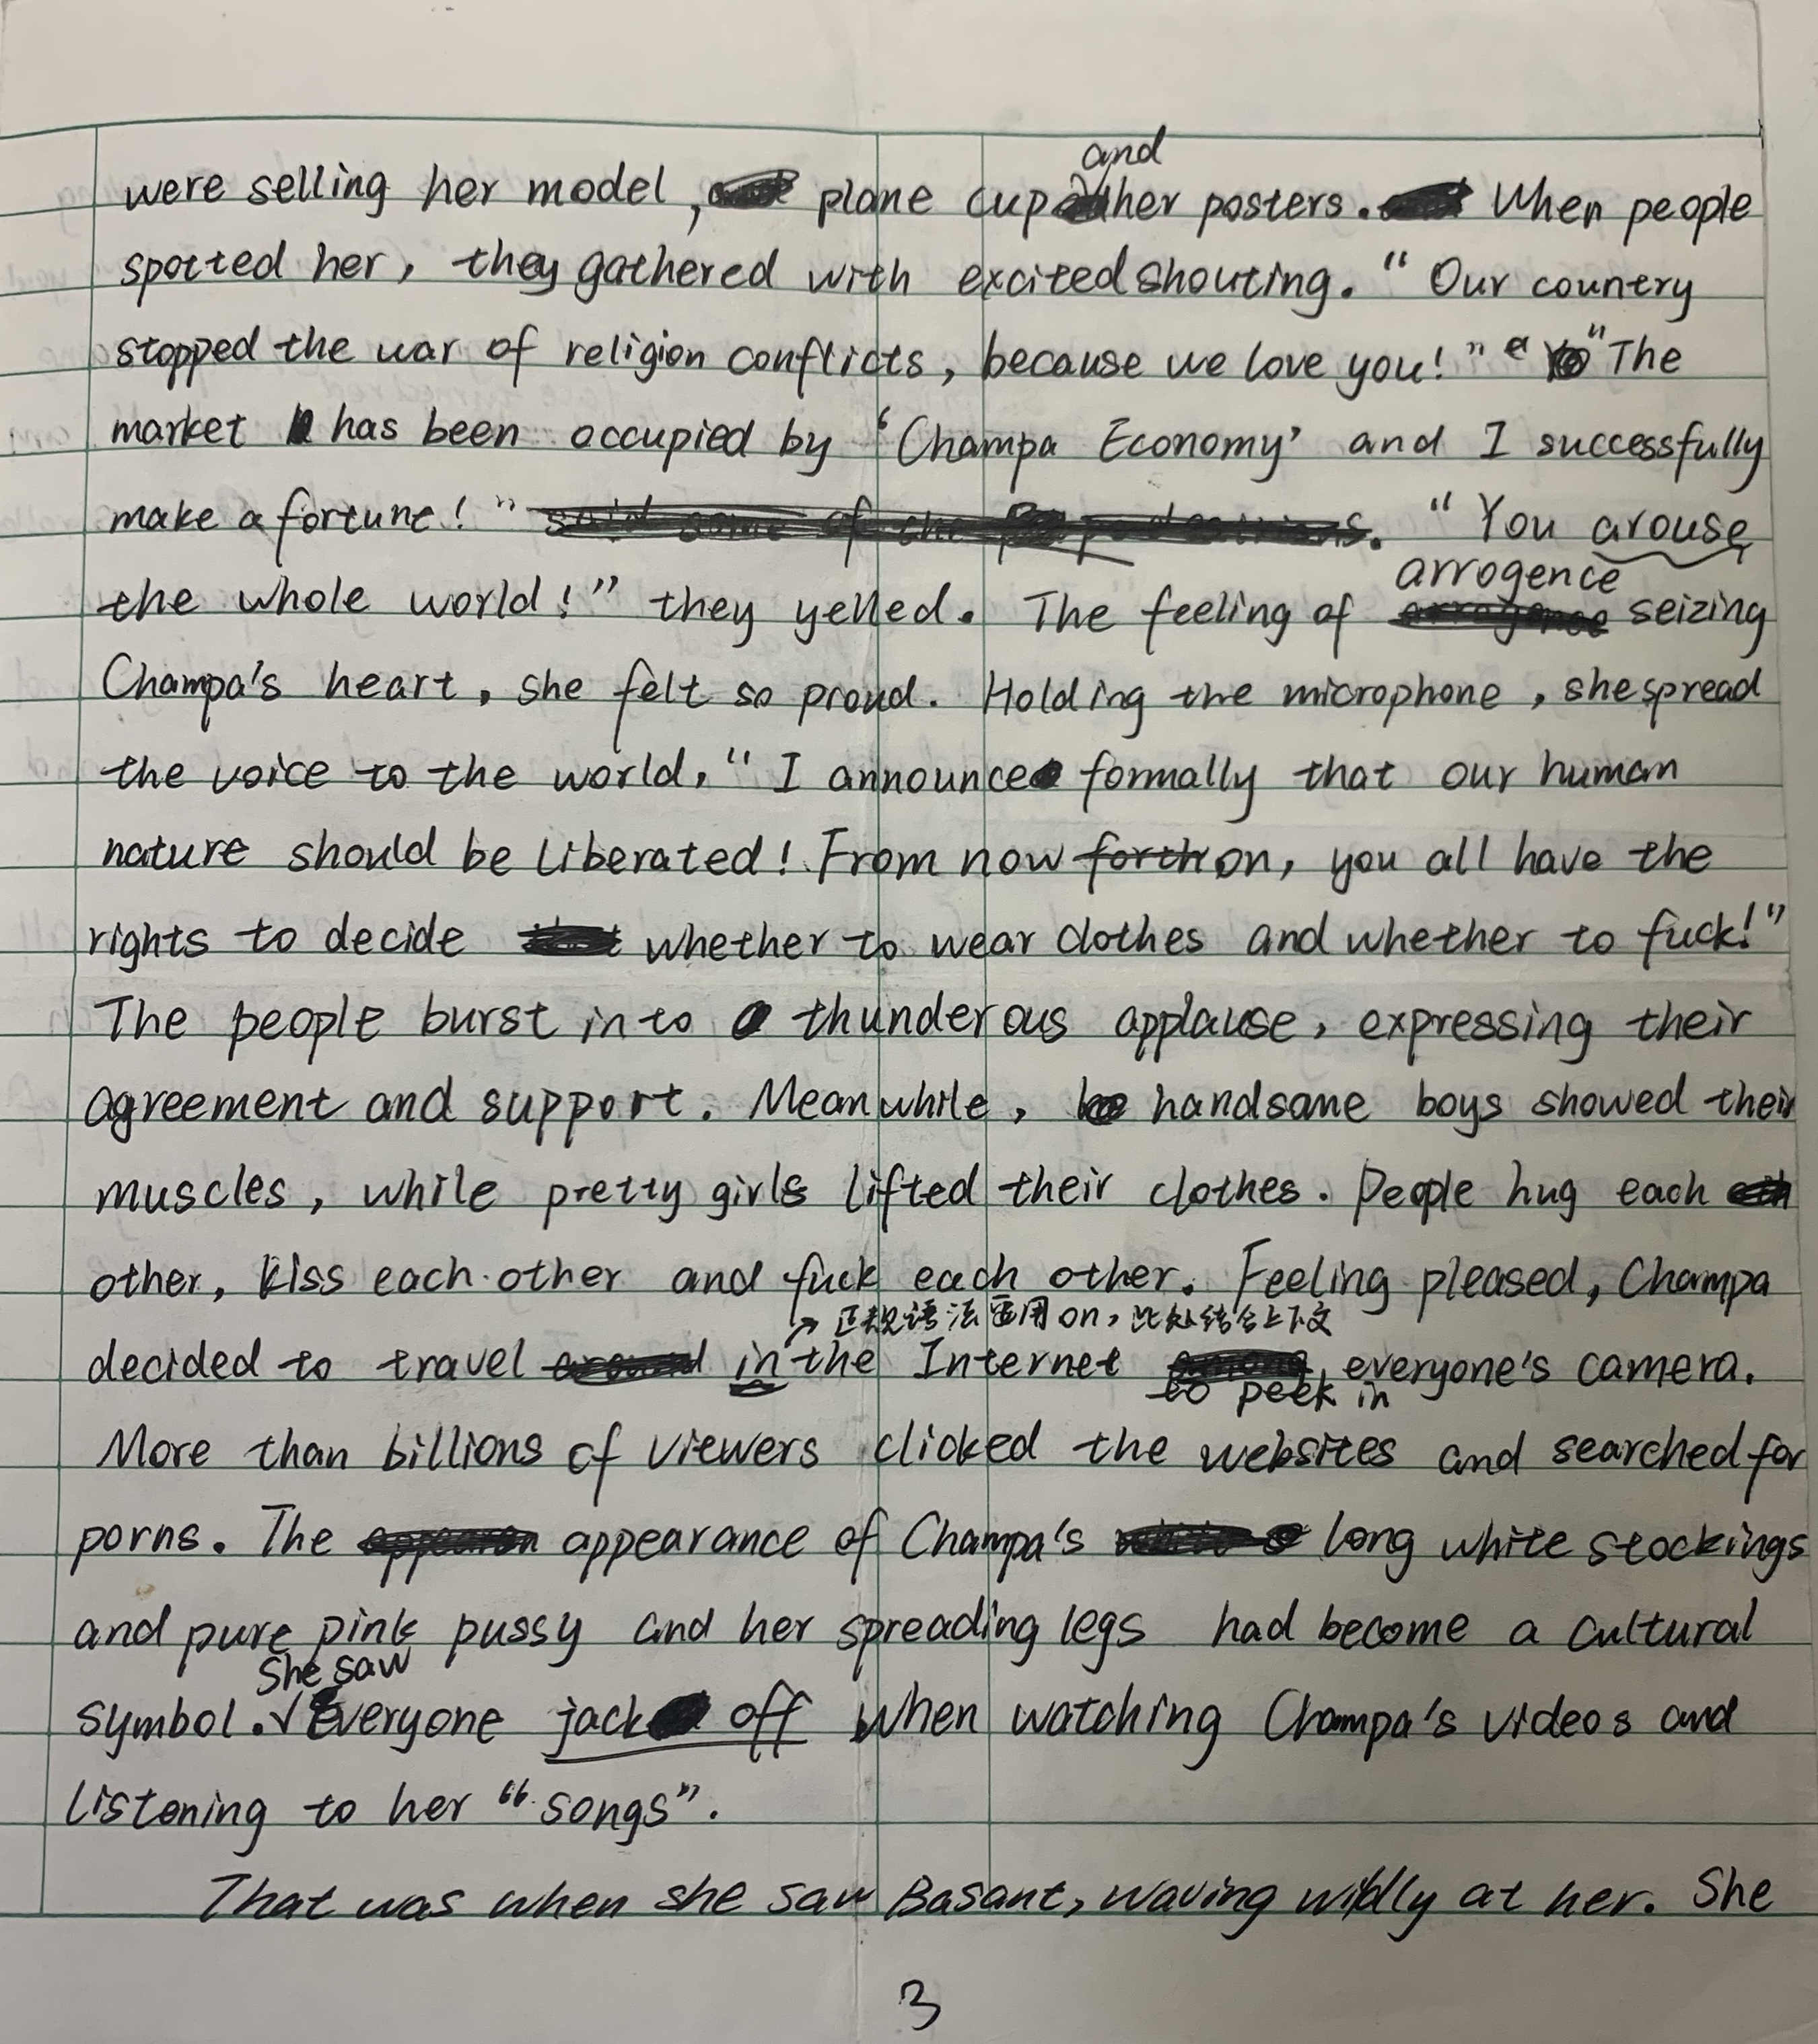 and
were selling her model, plane cup her posters. When people
spotted her, they gathered with excited shouting. “Our country
stopped the war of religion conflicts, because we love you!” “The
market has been occupied by ‘Champa Economy’ and I successfully
make a fortune!” “You arouse
the whole world!” they yelled. The feeling of arrogence seizing
Champa's heart, she felt so proud. Holding the microphone, she spread
the voice to the world, “I announce formally that our human
nature should be liberated! From now forth on, you all have the
rights to decide whether to wear clothes and whether to fuck!”
The people burst into thunderous applause, expressing their
agreement and support. Meanwhile, handsome boys showed their
muscles, while pretty girls lifted their clothes. People hug each
other, kiss each other and fuck each other. Feeling pleased, Champa
↗ 正规语法应用on，此处结合上下文
decided to travel in the Internet everyone's camera.
to peek in
More than billions of viewers clicked the websites and searched for
porns. The appearance of Champa's long white stockings
and pure pink pussy and her spreading legs had become a cultural
She saw
symbol. √ everyone jack off when watching Champa's videos and
listening to her “songs”.
That was when she saw Basant, waving wildly at her. She
3